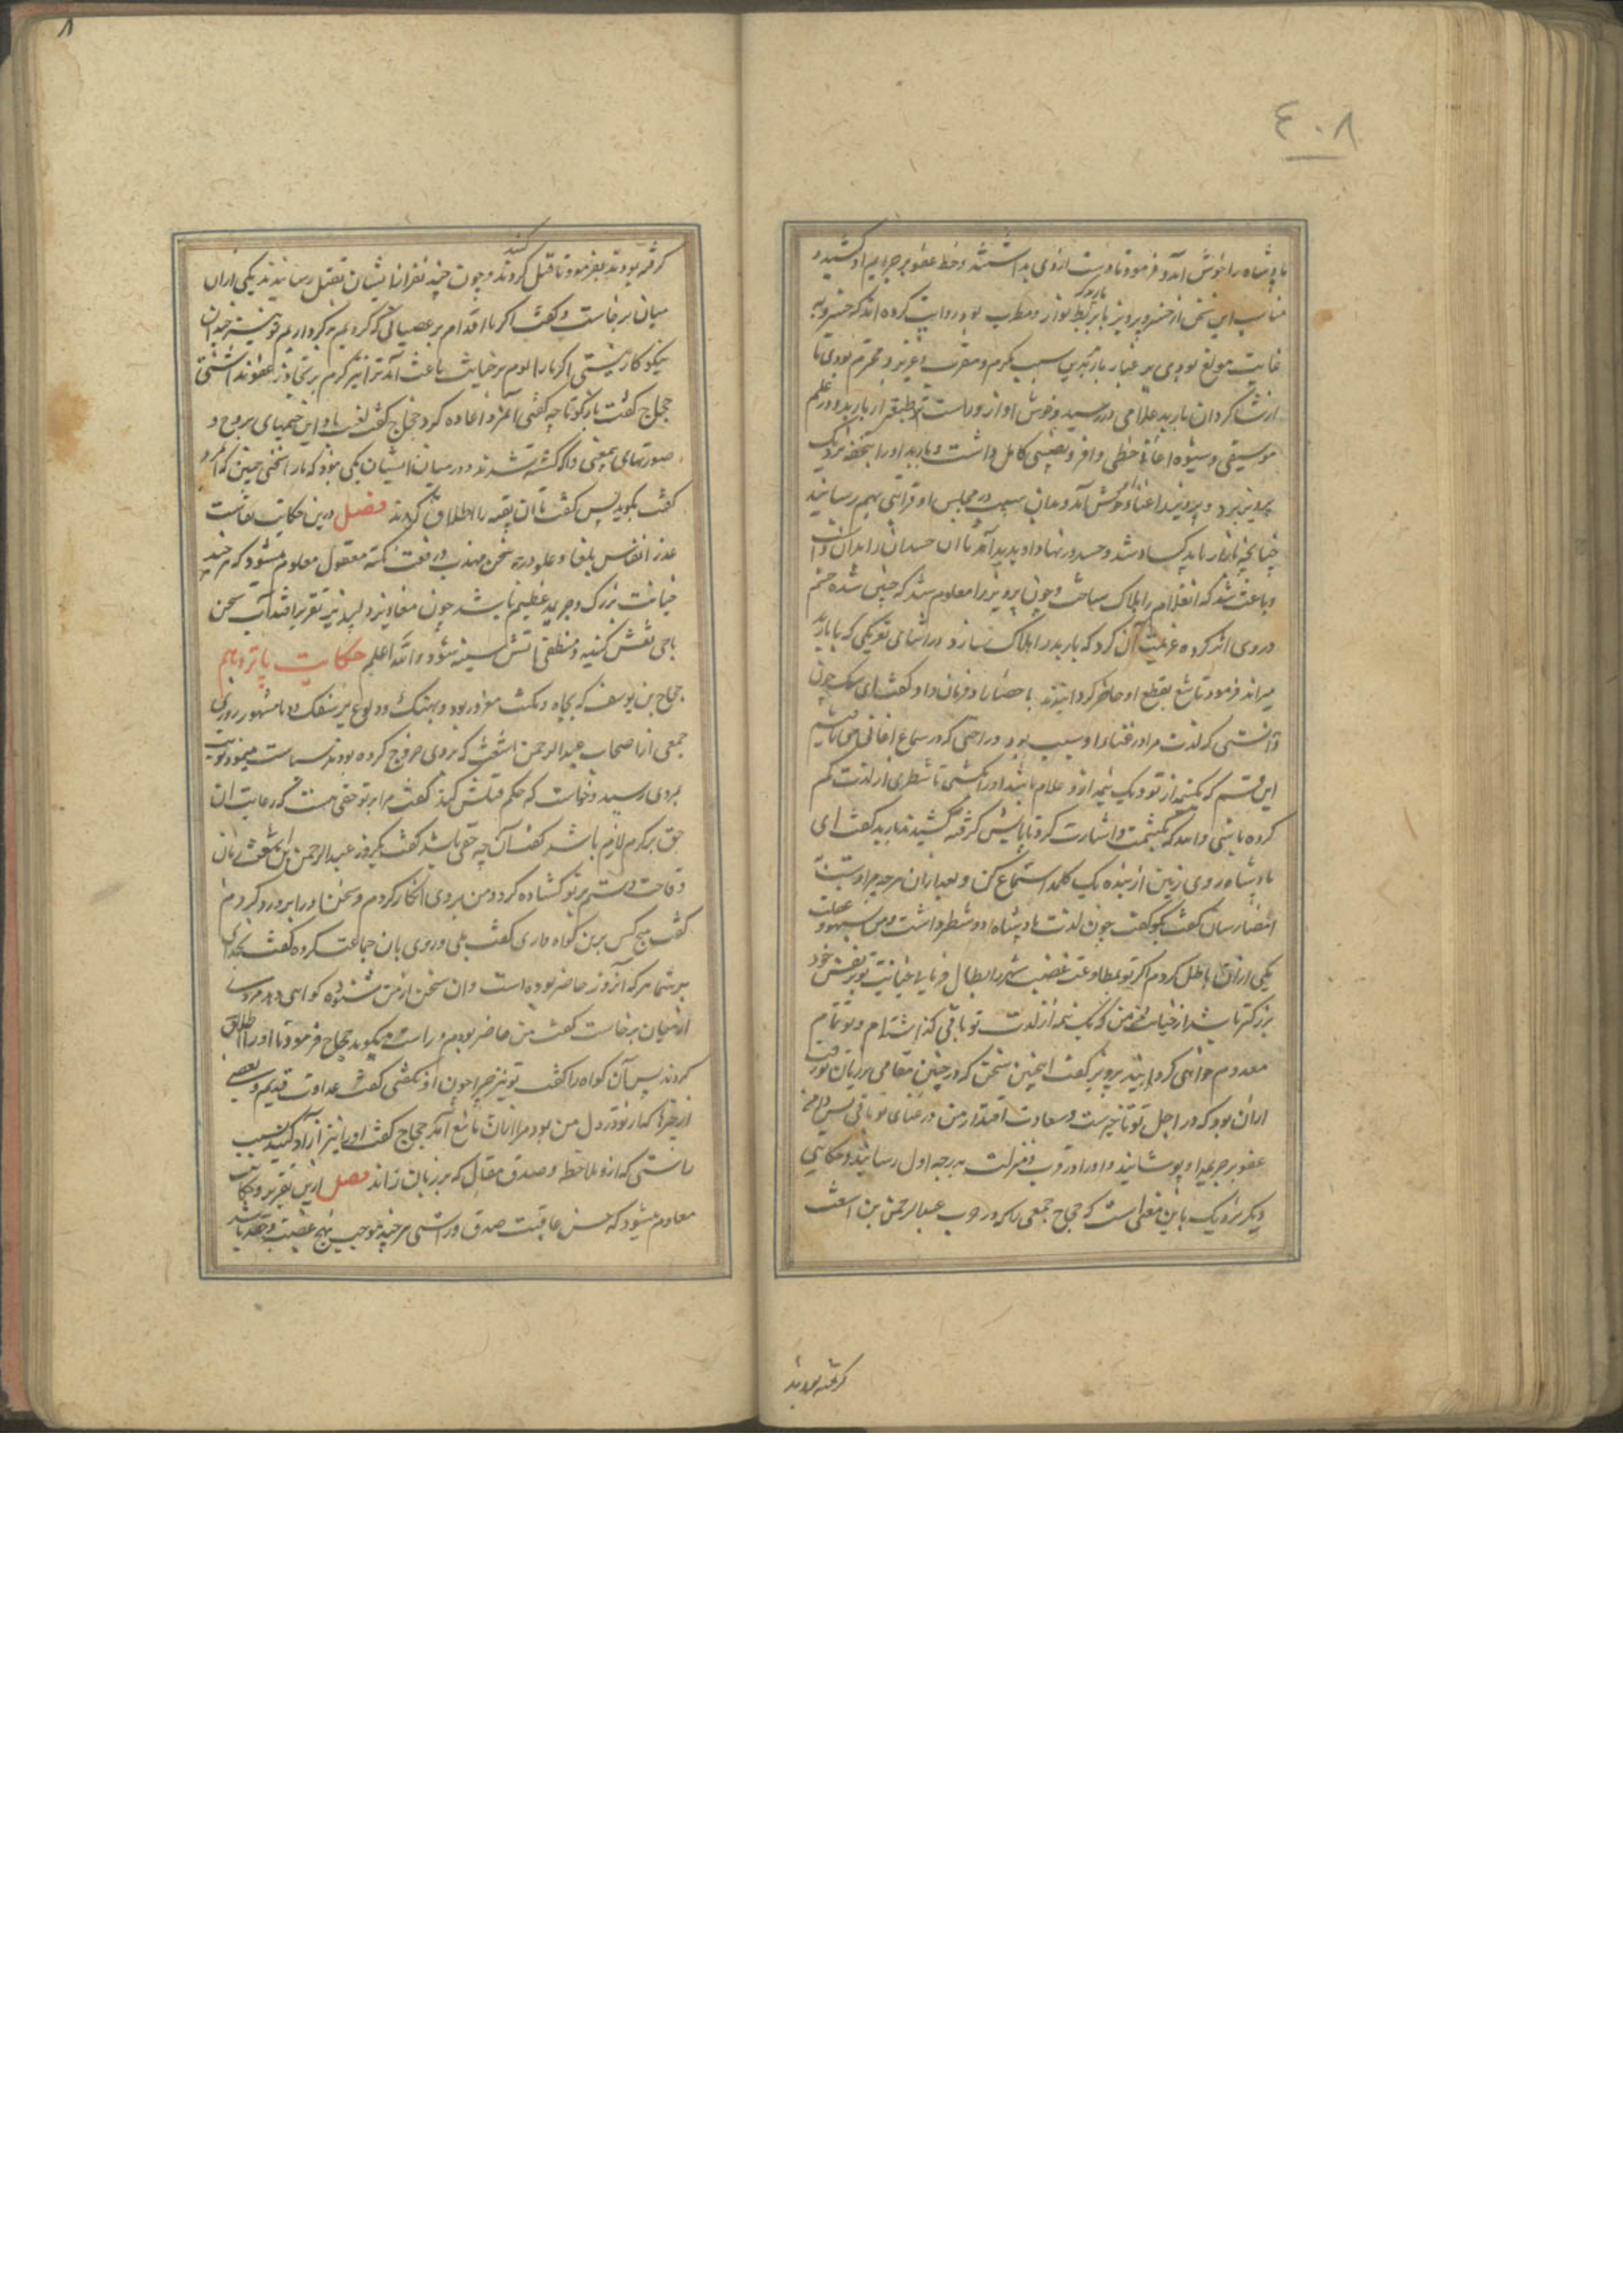 ٤٠٨
پادشاه را خوش آمد و فرمود تا دست ازوی بداشتند و خط عفو بر جرایم او کشید و
مناسب این سخن از خسرو پرویز با بربط نواز و مطرب بود روایت کرده اند که خسرو به
غایت مولع بودی بر باربد بدین سبب مکرم و مقرب و عزیز و محترم بودی تا
از شاگردان باربد غلامی در رسید و خوش آواز و راست طبقه از باربد و در علم
موسیقی و شیوه اغانی حظی وافر و نصیبی کامل داشت و باربد او را بتحفه نزدیک
پرویز برد و پرویز را غناء او خوش آمد و بدان سبب در مجلس او قرابتی بهم رسانید
چنانچه بازار باربد کساد شد و حسد در نهاد او پدید آمد تا آن حسد ان را بدان داشت
و باعث شد که آن غلام را هلاک ساخت و چون پرویز را معلوم شد که چنین شده خشم
در وی اثر کرده عزیمت آن کرد که باربد را هلاک سازد و در اثنای نزدیکی که با باربد
میراند فرمود تا تیغ و نطع او حاضر گردانیدند با حضار او فرمان داد و گفت ای سگ چون
دانستی که لذت مرا در غناء او سبب بود و راحتی که در سماع اغانی می یابیم
این قسم که یک نیمه از تو و یک نیمه از غلام باشد او را بکشتی تا شطری از لذت کم
کرده باشی و اشارت کرد تا پایش گرفته کشیدند باربد گفت ای
پادشاه روی زمین از بنده یک کلمه استماع کن و بعد از آن هرچه مراد تست
امضا رسان گفت بگو گفت چون لذت پادشاه دو شطر داشت و من بسهو و غفلت
یکی از آن باطل کردم اگر تو بمطاوعت غضب شطر دیگر ابطال فرمایی خیانت تو بر نفس خود
بزرگتر باشد از خیانت من که من یک نیمه از لذت تو باقی گذاشته ام و تو تمام
معدوم خواهی گردانید پرویز گفت این چنین سخن که در چنین مقامی بر زبان تو رفت
از آن بود که در اجل تو تاخیرست و سعادت اقتدار من در غنای تو باقی پس دامن
عفو بر جریمه او پوشانید و او را در قرب و منزلت به درجه اول رسانید و حکایتی
دیگر نزدیک باین معنی است که حجاج جمعی را که در حرب عبدالرحمن بن اشعث
گرفته بودند
٨
گرفته بودند بفرمود تا قتل کنند و چون چند نفر از ایشان بقتل رسانیدند یکی از آن
میان برخاست و گفت اگر ما اقدام بر عصیانی که کردیم بد کرداریم تو نیز چندان
نیکو کار نیستی اگر ما را لوم بر خیانت باعث آمد ترا نیز کرم بر تجاوز و عفو نداشتی
حجاج گفت بازگو تا چه گفتی آن مرد اعاده کرد حجاج گفت لعنت باد این جسمهای بی روح و
صورتهای بی معنی را که کشته شدند در میان ایشان یکی نبود که ما را سخنی چنین که این مرد
گفت بگوید پس گفت تا آن بقیه را اطلاق کردند فصل درین حکایت نفاست
عذر انفاس بلغا و علو درجه سخن مهذب و رفعت نکته معقول معلوم میشود که هرچند
خیانت بزرگ و جریمه عظیم باشد چون معاذیر دلپذیر تقریر افتد آب سخن
ماحی نقش کینه و منطفی آتش سینه شود و الله اعلم حکایت پانزدهم
حجاج بن یوسف که بجاه و مکنت مغرور بود و بهتک و ولوع بر سفک دما مشهور روزی
جمعی از اصحاب عبدالرحمن اشعث که بروی خروج کرده بودند سیاست میفرمود نوبت
بمردی رسید و خواست که حکم قتلش کند گفت مرا بر تو حقی هست که رعایت آن
حق بر کرم لازم باشد گفت آن چه حق باشد گفت یک روز عبدالرحمن ابن اشعث زبان
وقاحت و ستم بر تو گشاده کرد و من بر وی انکار کردم و سخن او را برو رد کردم
گفت هیچ کس برین گواه داری گفت بلی و روی بآن جماعت کرده گفت بخدای
بر شما هر که آنروز حاضر بوده است و آن سخن از من شنوده گواهی دهد مردی
از میان برخاست گفت من حاضر بودم و راست میگوید حجاج فرمود تا او را اطلاق
کردند پس آن گواه را گفت تو نیز چرا چون او نگفتی گفت عداوت قدیم و بعضی
از چیزها که از تو در دل من بود مرا از آن مانع آمد حجاج گفت او را نیز آزاد کنید بسبب
راستی که ازو ملاحظه و صدق مقال که بر زبان راند فصل ازین تقریر و حکایت
معلوم میشود که حسن عاقبت صدق و راستی هرچند موجب تهیج غضب و حقد باشد